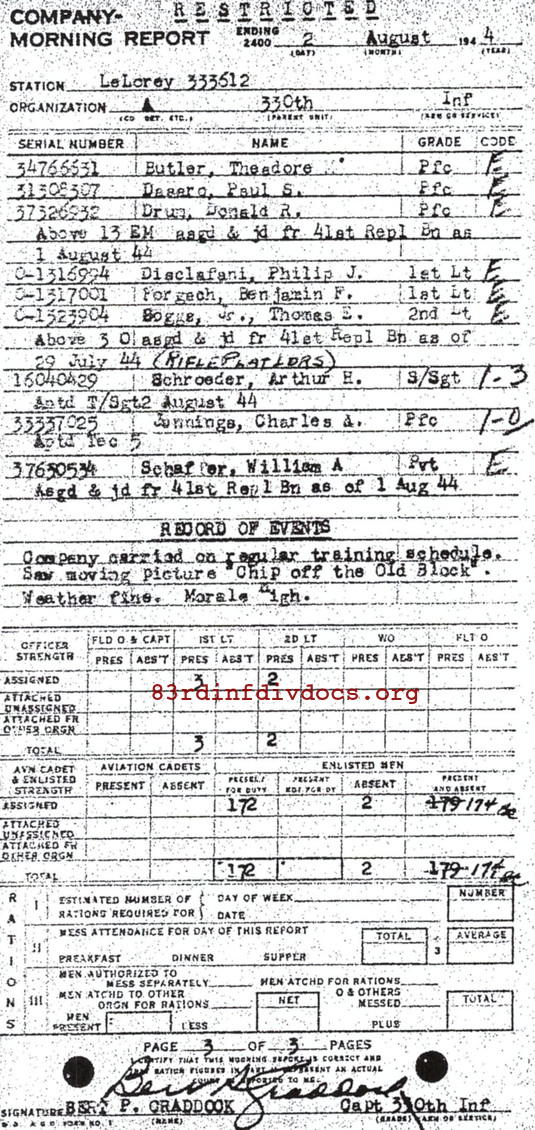 RESTRICTED
COMPANY-
MORNING REPORT ENDING 2400 2 August 1944
(DAY) (MONTH) (YEAR)
STATION LeLorey 333512
ORGANIZATION A 330th Inf
(CO DET. ETC.) (PARENT UNIT) (ARM OR SERVICE)
SERIAL NUMBER NAME GRADE CODE
34766531 Butler, Theadore Pfc E
31308307 Dasero, Paul S. Pfc E
37326932 Drum, Donald R. Pfc E
Above 13 EM asgd & jd fr 41st Repl Bn as
1 August 44
O-1316994 Disclafani, Philip J. 1st Lt E
O-1317001 Forgach, Benjamin F. 1st Lt E
O-1323904 Boggs, Jr., Thomas E. 2nd Lt E
Above 3 O asgd & jd fr 41st Repl Bn as of
29 July 44 (RIFLE PLAT LDRS)
16040429 Schroeder, Arthur H. S/Sgt 1-3
Aptd T/Sgt2 August 44
33337025 Jennings, Charles A. Pfc 1-0
Aptd Tec 5
37630534 Schaffer, William A Pvt E
Asgd & jd fr 41st Repl Bn as of 1 Aug 44
RECORD OF EVENTS
Company carried on regular training schedule.
Saw moving picture "Chip off the Old Block".
Weather fine. Morale High.
OFFICER STRENGTH FLD O & CAPT 1ST LT 2D LT WO FLT O
PRES ABS'T PRES ABS'T PRES ABS'T PRES ABS'T PRES ABS'T
ASSIGNED 3 2
83rdinfdivdocs.org
ATTACHED UNASSIGNED
ATTACHED FR OTHER ORGN
TOTAL 3 2
AVN CADET & ENLISTED STRENGTH AVIATION CADETS ENLISTED MEN
PRESENT ABSENT PRESENT FOR DUTY PRESENT NOT FOR DY ABSENT PRESENT AND ABSENT
ASSIGNED 172 2 179 174
ATTACHED UNASSIGNED
ATTACHED FR OTHER ORGN
TOTAL 172 2 179 174
RATIONS
I ESTIMATED NUMBER OF RATIONS REQUIRED FOR DAY OF WEEK DATE NUMBER
II MESS ATTENDANCE FOR DAY OF THIS REPORT TOTAL ÷ 3 AVERAGE
BREAKFAST DINNER SUPPER
III MEN AUTHORIZED TO MESS SEPARATELY MEN ATCHD FOR RATIONS
MEN ATCHD TO OTHER ORGN FOR RATIONS NET O & OTHERS MESSED TOTAL
MEN PRESENT LESS PLUS
PAGE 3 OF 3 PAGES
I CERTIFY THAT THIS MORNING REPORT IS CORRECT AND
Bert P. Craddock
SIGNATURE BERT P. CRADDOCK Capt 330th Inf
(NAME) (GRADE) (ARM OR SERVICE)